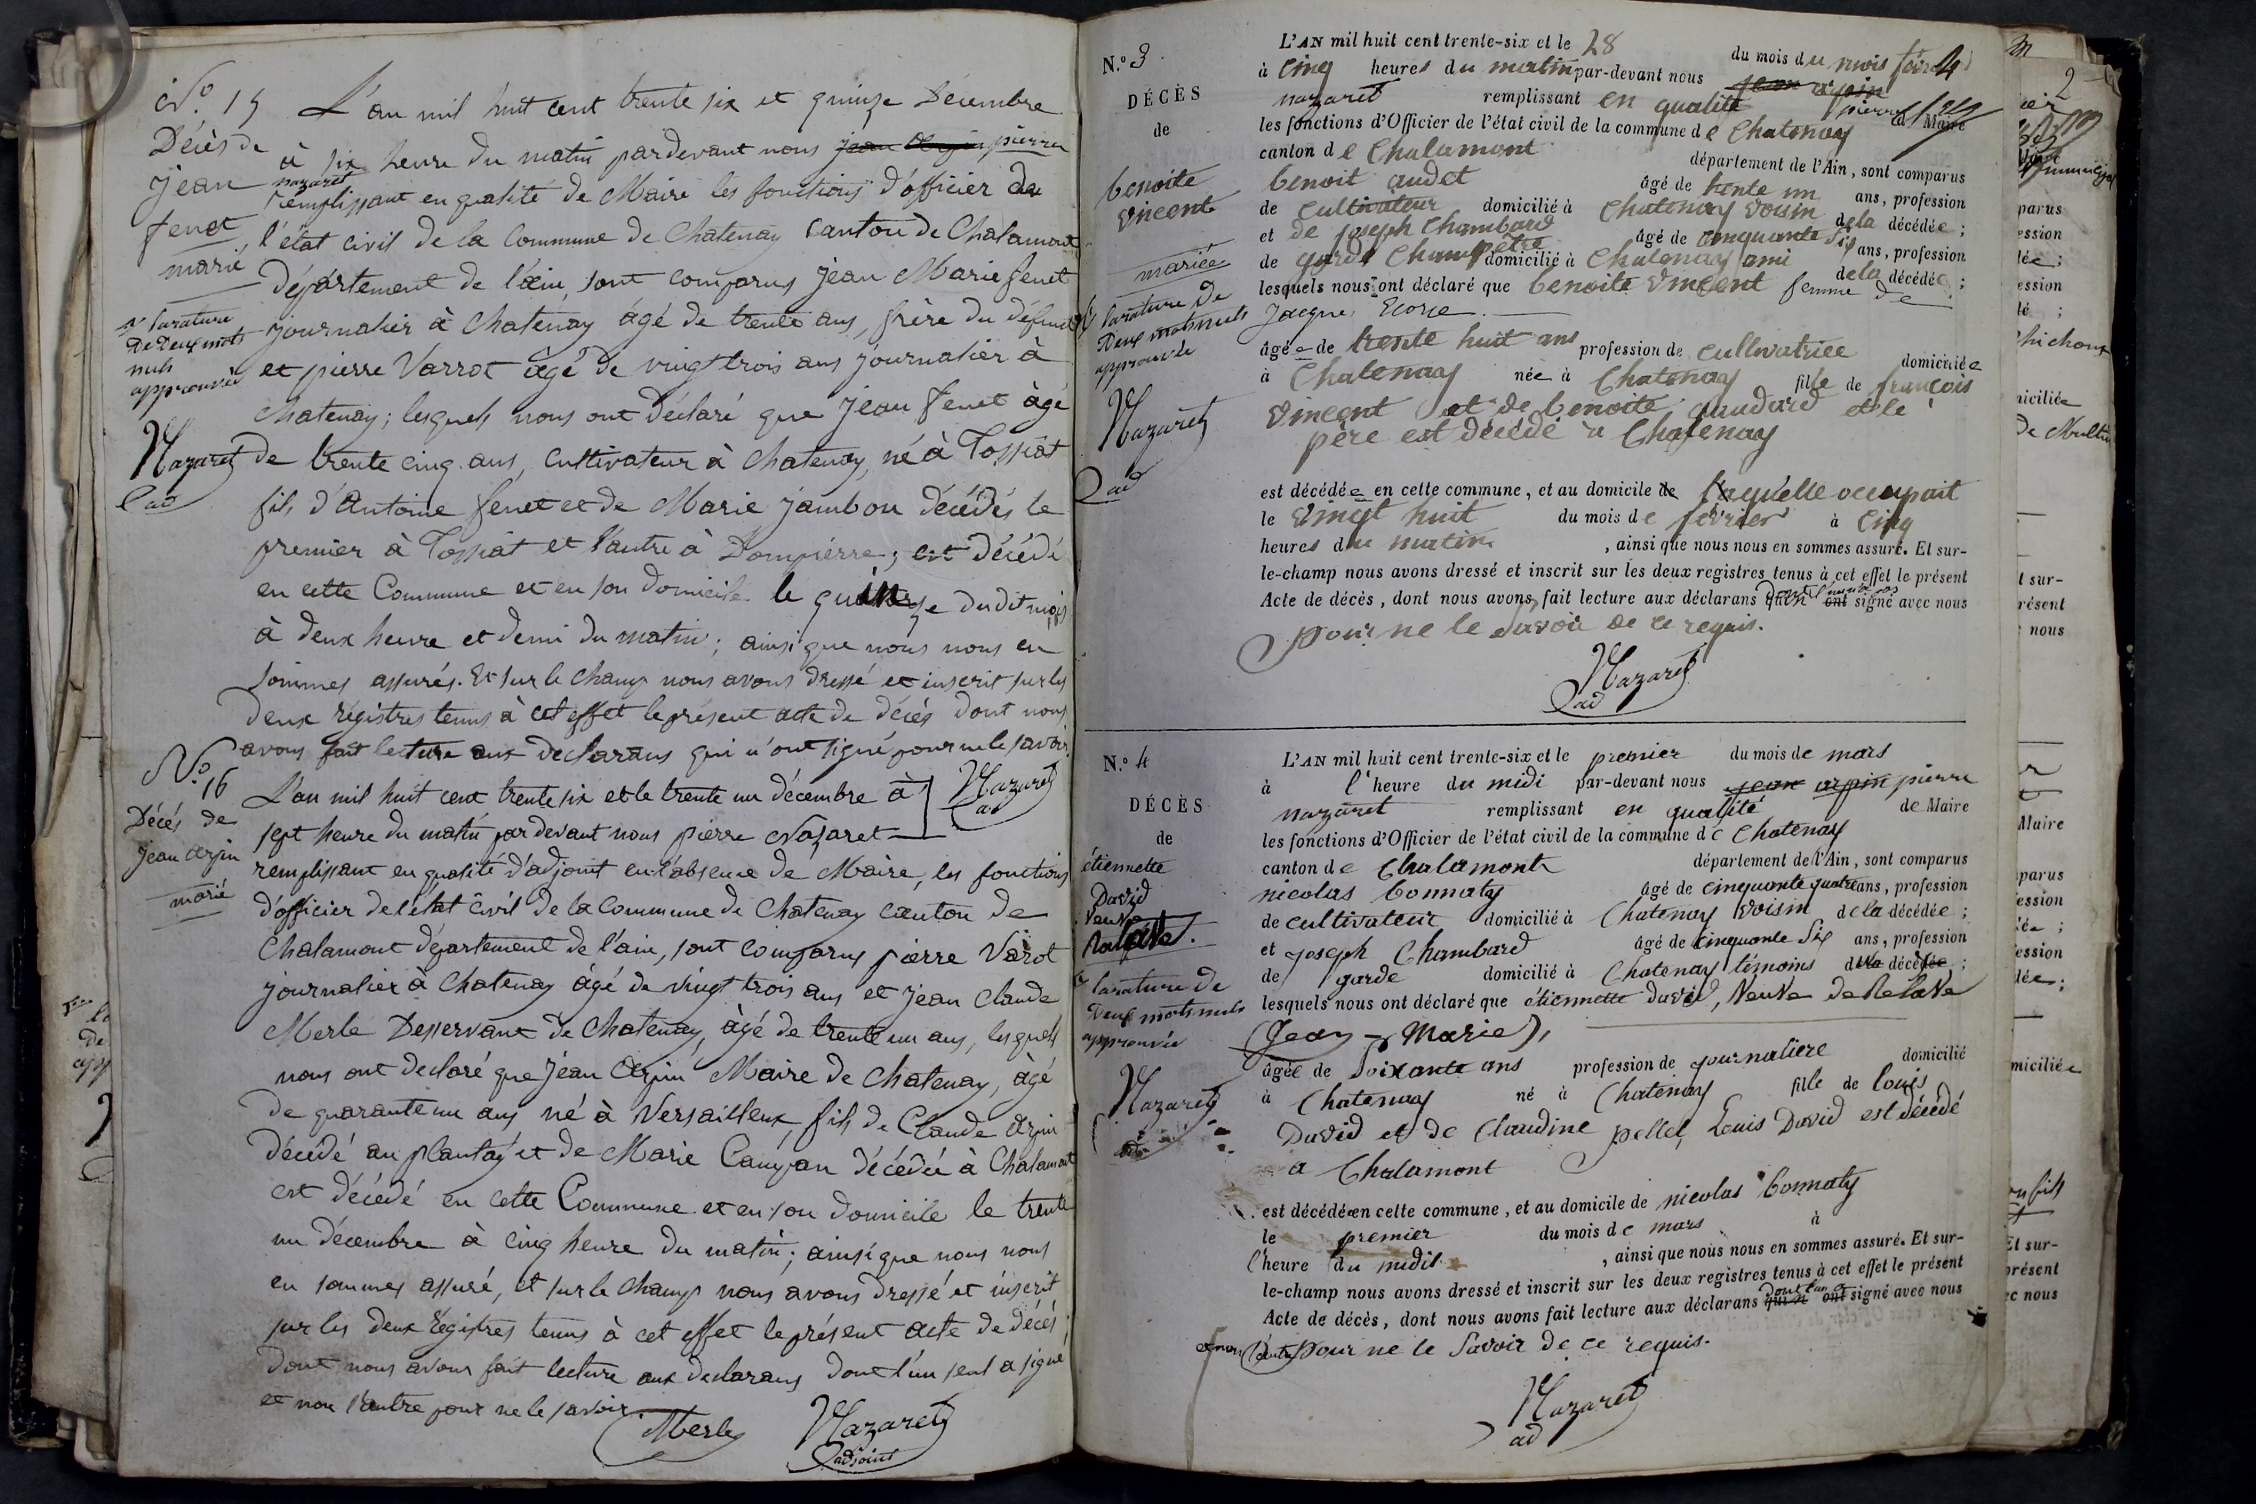 N.º 15
Décès de
jean
fenet
marié
L'an mil huit cent trente six et quinze Décembre
à six heure du matin pardevant nous jean arpin pierre
nazaret
remplissant en qualité de Maire les fonctions d'officier de
l'état civil de la Commune de Chatenay Canton de Chalamont
Département de l'ain, sont comparus jean Marie fenet
journalier à Chatenay âgé de trente ans, frère du défunt
et pierre Varrot âgé de vingt trois ans journalier à
Chatenay; lesquels nous ont déclaré que jean fenet âgé
de trente cinq ans, Cultivateur à Chatenay, né à Tossiat
fils d'Antoine fenet et de Marie jambon décédés le
premier à Tossiat et l'autre à Dompierre; est décédé
en cette Commune et en son domicile le quinze dudit mois
à deux heure et demi du matin; ainsi que nous nous en
sommes assurés. Et sur le champ nous avons dressé et inscrit sur les
deux régistres tenus à cet effet le présent acte de décès dont nous
avons fait lecture aux declarans qui n'ont signé pour ne le savoir
Nazaret
ad
la rature
de deux mots
nuls
approuvée
Nazaret
ad
N.º 16
Décès de
jean arpin
marié
L'an mil huit cent trente six et le trente un décembre à
sept heure du matin par devant nous pierre Nazaret
remplissant en qualité d'adjoint en l'absence de Maire, les fonctions
d'officier de l'état civil de la Commune de Chatenay canton de
Chalamont département de l'ain, sont comparus pierre Varot
journalier à Chatenay âgé de vingt trois ans et jean Claude
Merle Desservant de Chatenay, âgé de trente un ans, lesquels
nous ont declaré que jean arpin Maire de Chatenay, âgé
de quarante un ans né à Versailleux, fils de Claude arpin
décédé au plantay et de Marie Canyan décédée à Chalamont
est décédé en cette Commune et en son domicile le trente
un décembre à cinq heure du matin; ainsi que nous nous
en sommes assuré, et sur le champ nous avons dressé et inscrit
sur les deux régistres tenus à cet effet le présent acte de décès;
dont nous avons fait lecture aux declarans dont l'un seul a signé
et non l'autre pour ne le savoir
Merle Nazaret
adjoint
N.º 3
DÉCÈS
de
benoite
vincent
mariée
la rature de
deux mots nuls
approuvée
Nazaret
ad
L'AN mil huit cent trente-six et le 28 du mois du mois février
à cinq heures du matin par-devant nous jean arpin pierre
nazaret remplissant en qualité de Maire
les fonctions d'Officier de l'état civil de la commune de Chatenay
canton de Chalamont département de l'Ain, sont comparus
benoit audet âgé de trente un ans, profession
de cultivateur domicilié à Chatenay voisin de la décédée;
et de joseph Chambard âgé de cinquante six ans, profession
de garde Champêtre domicilié à Chatenay ami de la décédée;
lesquels nous ont déclaré que benoite vincent femme de
Jacque Ecorse
âgée de trente huit ans profession de cultivatrice domiciliée
à Chatenay née à Chatenay fille de françois
vincent et de benoite gaudard et le
père est décédé a Chatenay
est décédée en cette commune, et au domicile de laquelle occupait
le vingt huit du mois de février à cinq
heures du matin , ainsi que nous nous en sommes assuré. Et sur-
le-champ nous avons dressé et inscrit sur les deux registres tenus à cet effet le présent
Acte de décès, dont nous avons fait lecture aux déclarans ont signé avec nous
pour ne le savoir de ce requis.
Nazaret
ad
N.º 4
DÉCÈS
de
étiennette
David
veuve
la rature de
deux mots nuls
approuvée
Nazaret
ad
L'AN mil huit cent trente-six et le premier du mois de mars
à l'heure du midi par-devant nous jean arpin pierre
nazaret remplissant en qualité de Maire
les fonctions d'Officier de l'état civil de la commune de Chatenay
canton de Chalamont département de l'Ain, sont comparus
nicolas bonnaty âgé de cinquante quatre ans, profession
de cultivateur domicilié à Chatenay voisin de la décédée;
et joseph Chambard âgé de cinquante six ans, profession
de garde domicilié à Chatenay témoins de la décédée;
lesquels nous ont déclaré que étiennette david, Veuve de Relave
(Jean-Marie),
âgée de soixante ans profession de journaliere domicilié
à Chatenay né à Chatenay fille de louis
David et de Claudine pellet, Louis David est décédé
a Chalamont
est décédée en cette commune, et au domicile de nicolas bonnaty
le premier du mois de mars à
l'heure du midi , ainsi que nous nous en sommes assuré. Et sur-
le-champ nous avons dressé et inscrit sur les deux registres tenus à cet effet le présent
Acte de décès, dont nous avons fait lecture aux déclarans dont l'un a qui n' ont signé avec nous
et non l'autre pour ne le savoir de ce requis.
Nazaret
ad